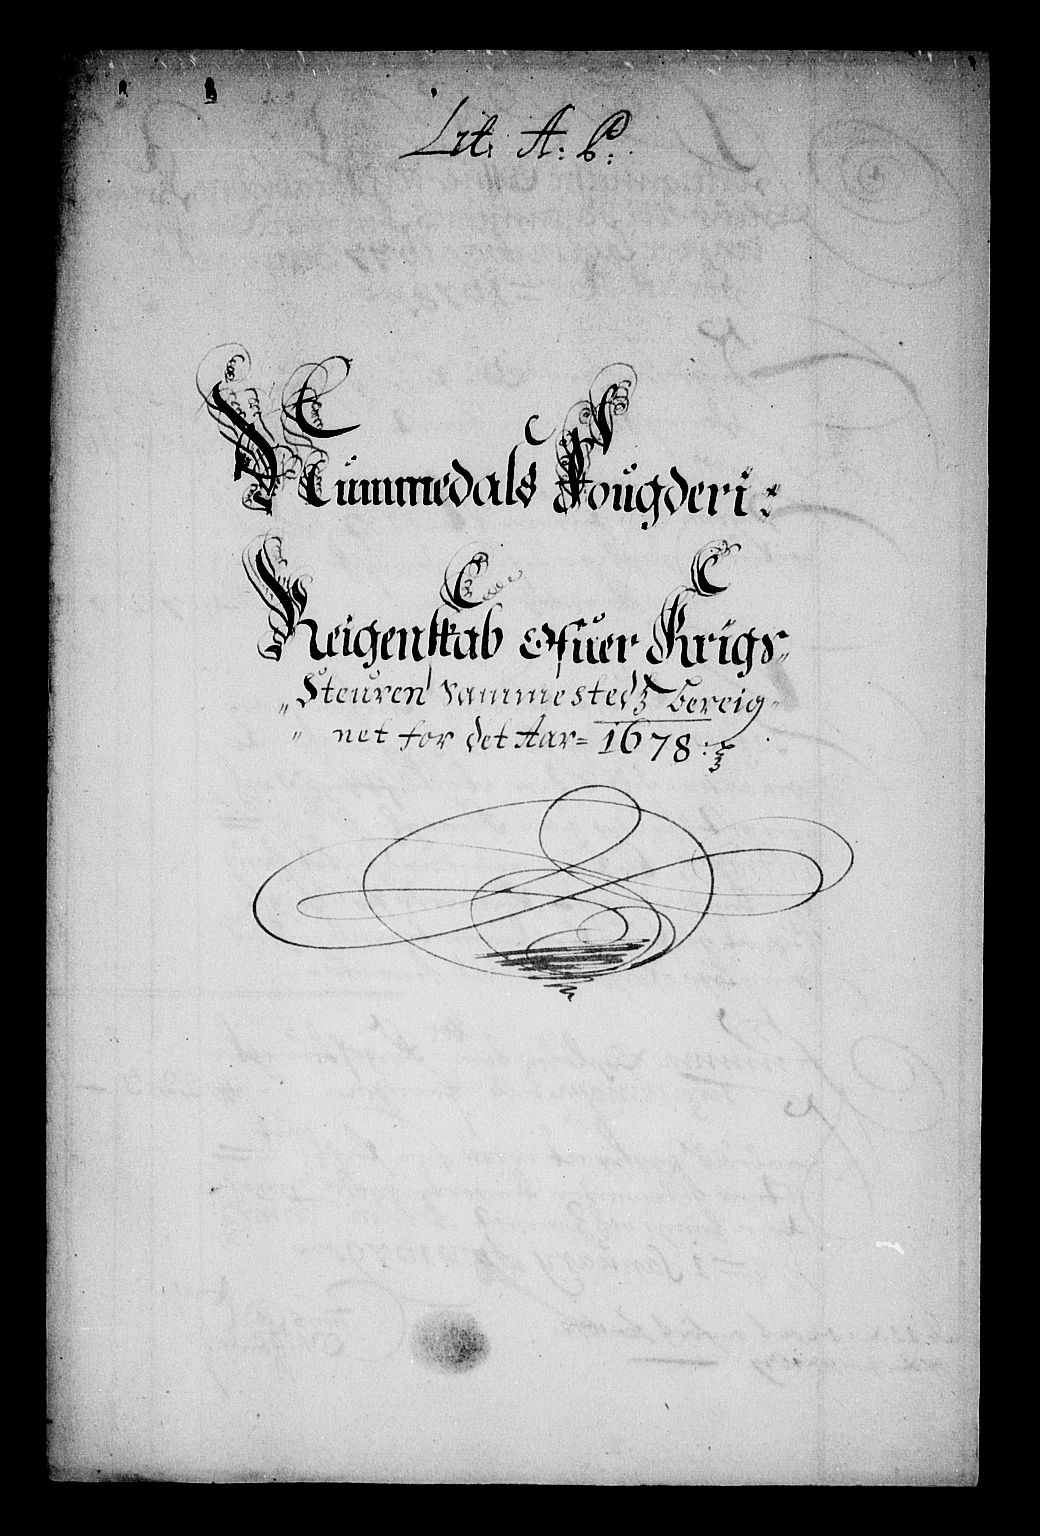 Lit. A: B:
Nummedals Fougderi:
Reigenskab Ofuer Krigs„
„Steuren Sammestedz Bereig„
„ net for det Aar= 1678